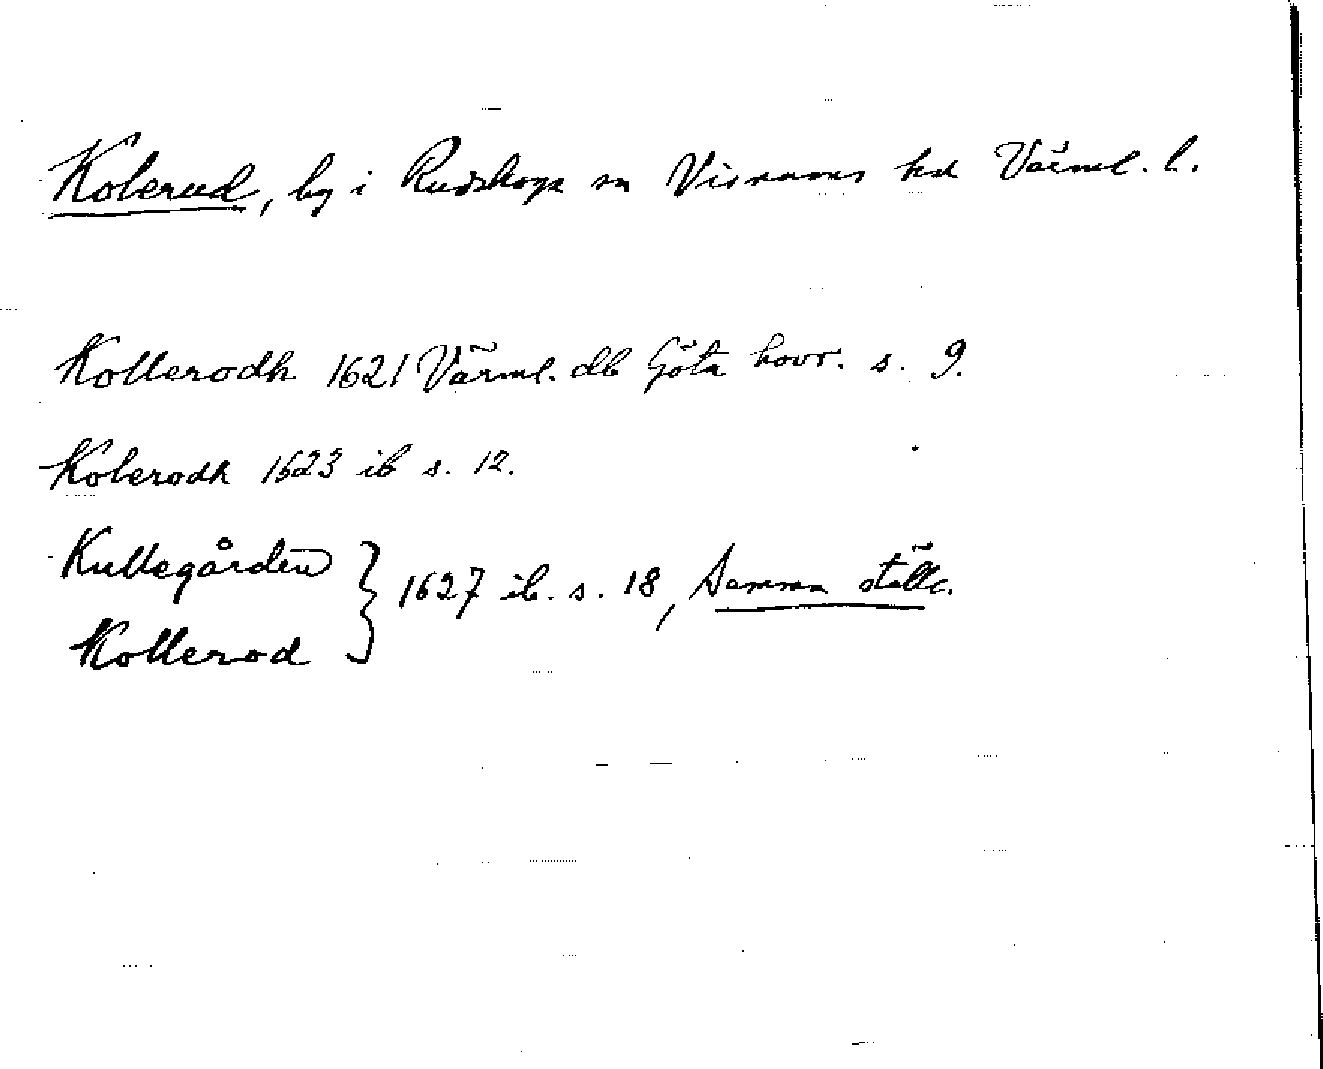 Kolerud, by i Rudskoga sn Visnums hd Värml. l.
Kollerodh 1621 Värml. db Göta hovr. s. 9.
Kolerodh 1623 ib s. 12.
Kullegården } 1627 ib. s. 18, Samma ställe.
Kollerod